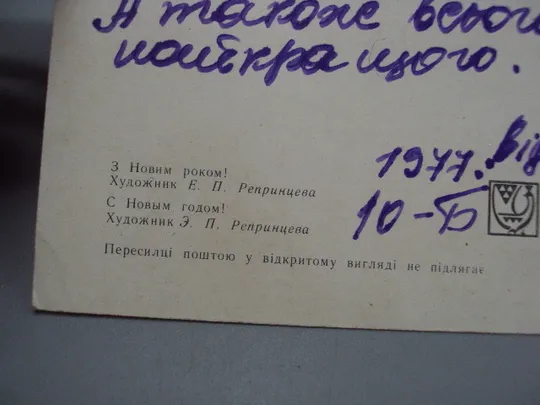 А також всього
найкращого.
1977. Від
10-Б
З Новим роком!
Художник Е. П. Репринцева
С Новым годом!
Художник Э. П. Репринцева
Пересилці поштою у відкритому вигляді не підлягає